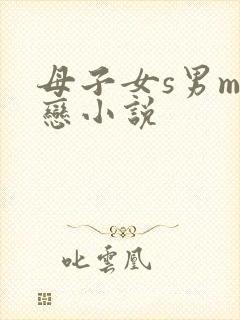 母子女s男m
戀小說
叱雲凰